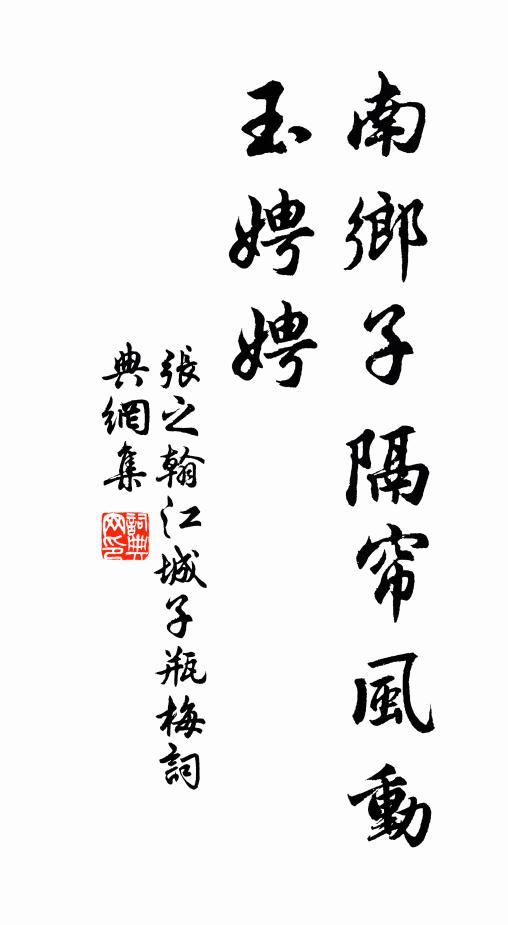 南鄉子隔帘風動
玉娉娉
張之翰江城子瓶梅詞
典網集
詞典网印